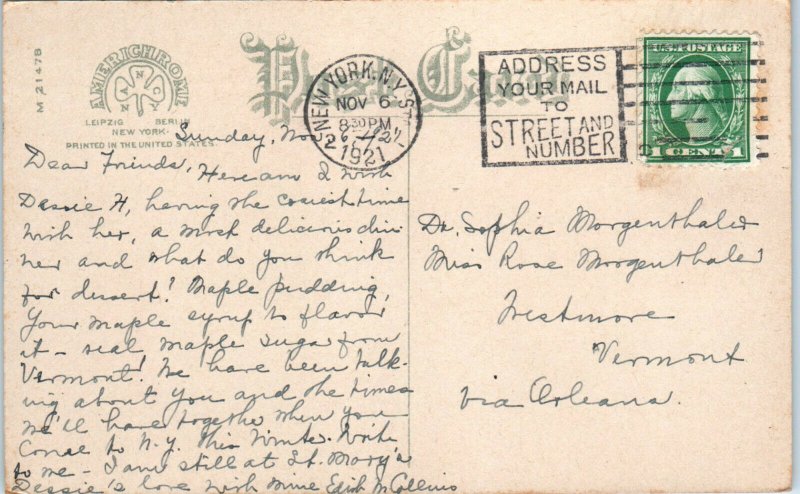 M 21478
AMERICHROME
ANCO
LEIPZIG BERLIN
NEW YORK
PRINTED IN THE UNITED STATES.
Post Card
NEW YORK, N.Y.
NOV 6
8 30 PM
1921
ADDRESS
YOUR MAIL
TO
STREET AND
NUMBER
U.S. POSTAGE
1 CENT 1
Sunday, Nov. 6 - 1921 -
Dear Friends,
Here am I with
Dessie H, having the cosiest time
with her, a most delicious din
ner and what do you think
for dessert! Maple pudding,
your maple syrup to flavor
it - real maple sugar from
Vermont! We have been talk-
ing about you and the times
we'll have together when you
come to N.Y. this Winter. Write
to me - I am still at St. Mary's
Dessie's love with mine Edith McCollins
Dr. Sophia Morgenthaler
Miss Rose Morgenthaler
Westmore
Vermont
via Orleans.